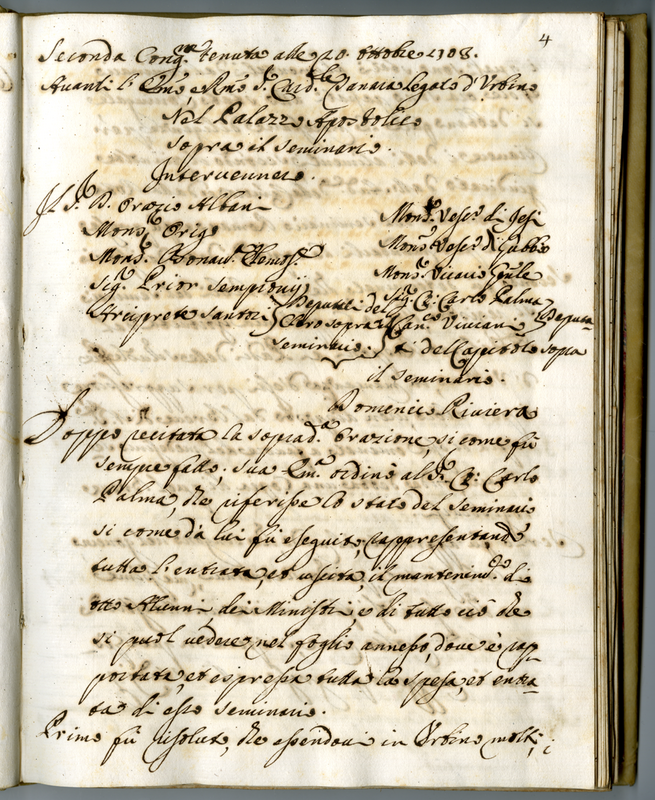 4
Seconda Cong.ne tenuta alle 20 ottobre 1708.
Avanti l'Em.o e Rm.o S.r Card.le Tanara legato d'Urbino
Nel Palazzo Apostolico
sopra il seminario.
Intervennero.
Il S.r D. Orazio Albani
Mons.r Origo
Mons.r
Sig.r Prior Sempronij
Arciprete Santoci
Deputati del
Clero sopra il
seminario.
Mons.r Vesc.o di Jesi
Mons.r Vesc.o di Gubbio
Mons.r Vicario Gn̄le
Sig.r C: Carlo Palma
Can.co Viviani
Deputa-
ti del Capitolo sopra
il seminario.
Domenico Riviera
Doppo recitata la soprad.a Orazione, si come fù
sempre fatto, sua Em.a ordinò al S.r C: Carlo
Palma, che riferisse lo stato del seminario
si come da lui fù eseguito, rappresentando
tutta l'entrata, et uscita, il mantenim.to di
otto Alunni, dei Ministri, e di tutto ciò che
si puol vedere nel foglio annesso, dove è rap-
portata, et espressa tutta la spesa, et entra-
ta di esso seminario.
Primo fù risoluto, che essendovi in Urbino molti,